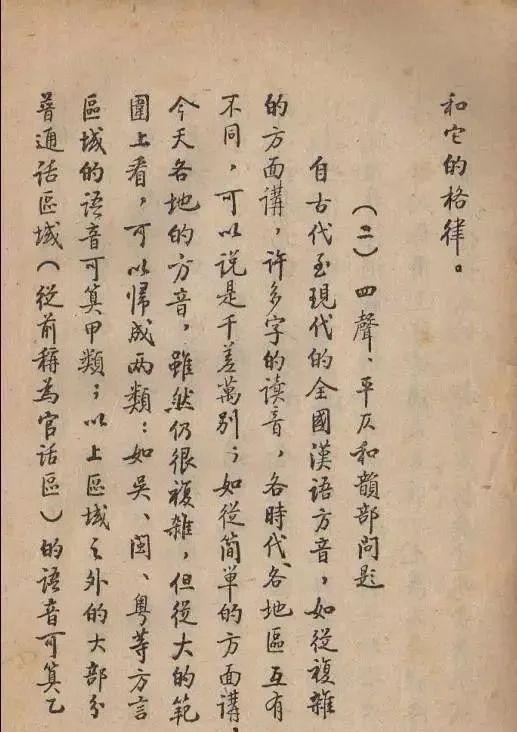 和它的格律。
(二)四聲、平仄和韻部問題
自古代至現代的全國漢語方音，如從複雜
的方面講，許多字的读音，各時代、各地區互有
不同，可以説是千差萬別；如從简单的方面講，
今天各地的方音，雖然仍很複雜，但從大的範
圍上看，可以歸成两類：如吴、闽、粤等方言
區域的语音可算甲類；以上區域之外的大部分
普通话區域(從前稱為官话區)的語音可算乙